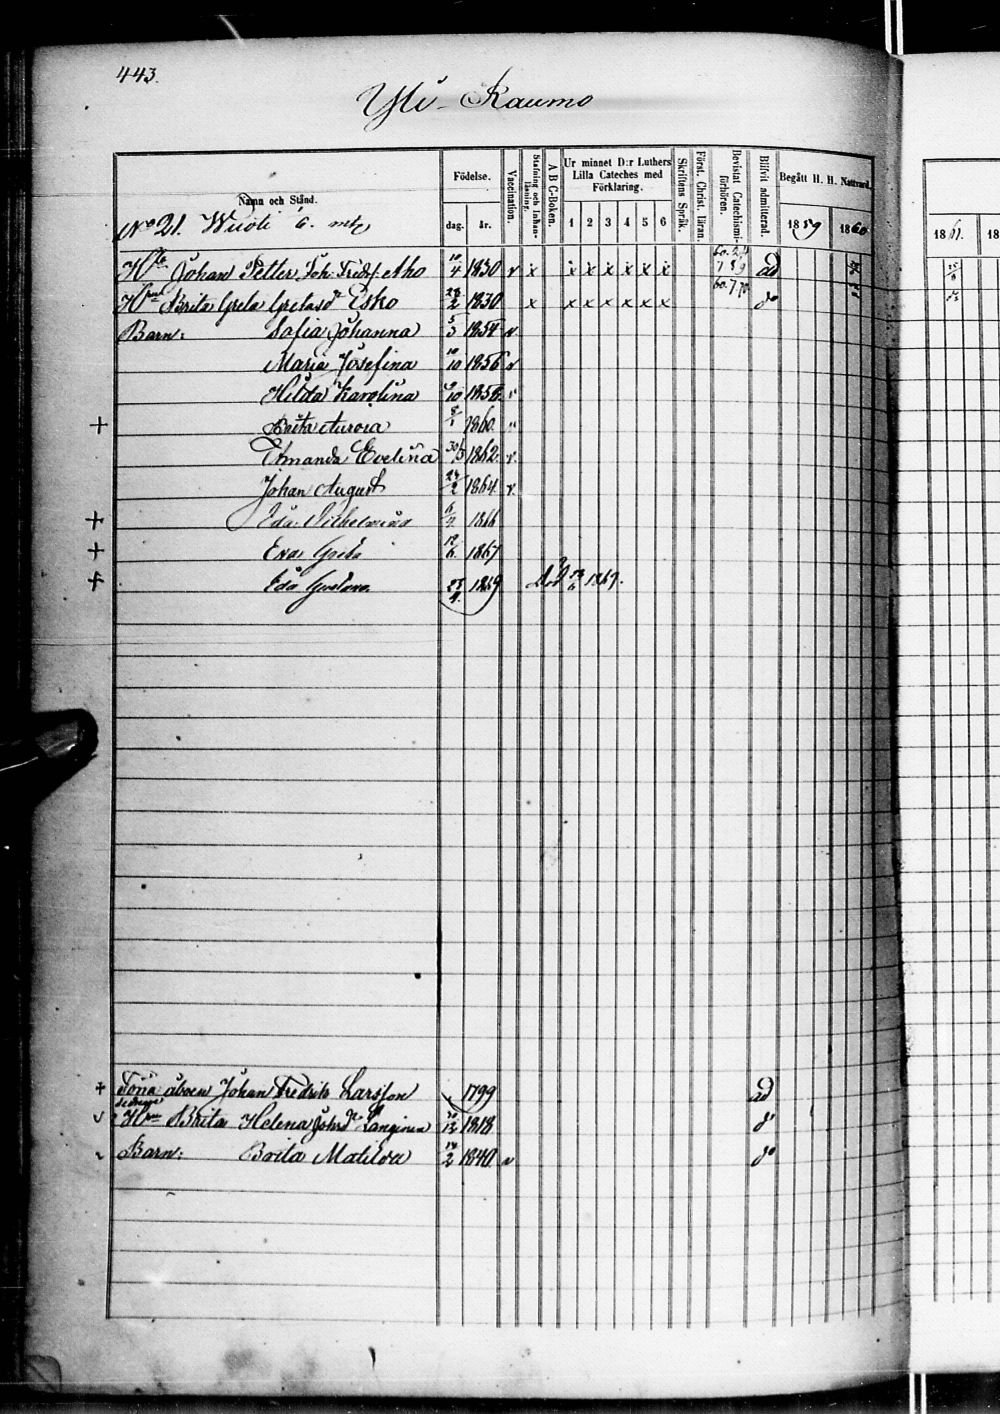 443.
Yli-Raumo
Namn och Stånd.
Födelse.
dag. år.
Vaccination.
Stafning och Innanläsning.
A B C-Boken.
Ur minnet D:r Luthers Lilla Cateches med Förklaring.
1 2 3 4 5 6
Skriftens Språk.
Först. Christ. läran.
Bevistat Catechismiförhören.
Blifvit admitterad.
Begått H. H. Nattvard.
1859 1860
1861. 18
No 21.
Johan Petter Joh. Fredss. Aho 10/4 1830 v x x x x x x x ad
Brita Greta Gretasdr Esko 28/2 1830 x x x x x x x do
Barn: Sofia Johanna 5/3 1854 v
Maria Josefina 10/10 1856 v
Hilda Karolina 9/10 1858 v
+ Brita Aurora 8/1 1860
Amanda Evelina 30/5 1862 v
Johan August 24/2 1864 v
+ Eda Vilhelmina 6/4 1866
+ Eva Greta 12/6 1867
+ Eda Gustava 1869 död 1869.
+ Johan Fredrik Larsson 1799 ad
v Brita Helena Johsdr 1818 do
Barn: Brita Matilda 14/2 1840 v do